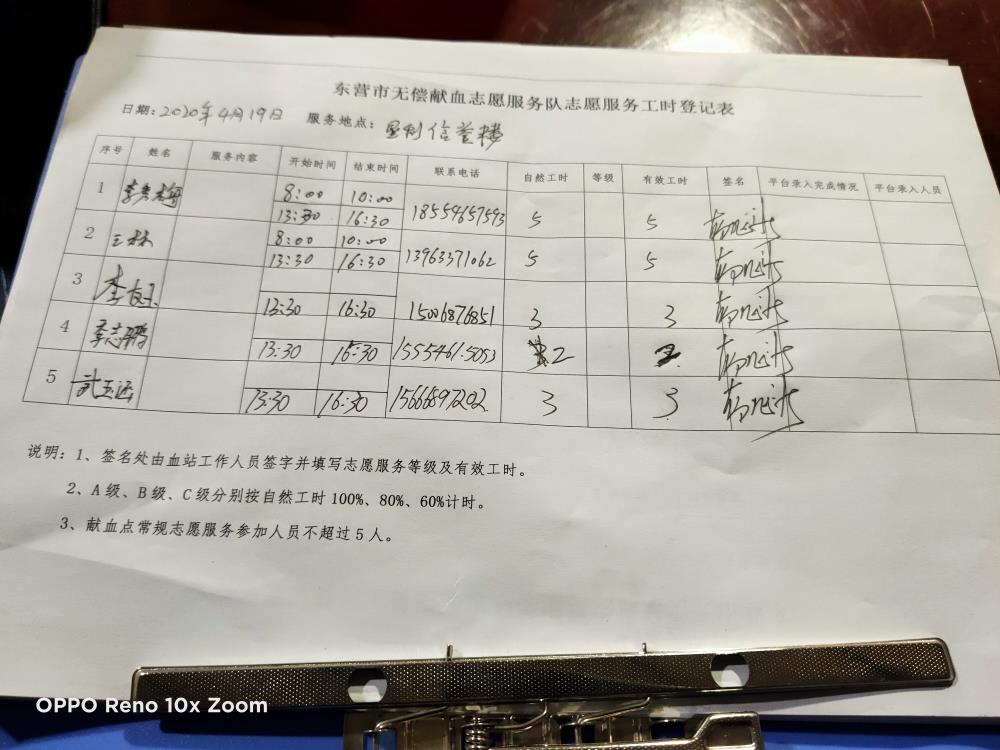 东营市无偿献血志愿服务队志愿服务工时登记表
日期：2020年4月19日 服务地点：垦利信誉楼
序号 姓名 服务内容 开始时间 结束时间 联系电话 自然工时 等级 有效工时 签名 平台录入完成情况 平台录入人员
1 8:00 10:00
13:30 16:30 18559657593 5 5
2 王林 8:00 10:00
13:30 16:30 13963371062 5 5
3 13:30 16:30 15006876851 3 3
4 李志鹏 13:30 16:30 15554615053 2 2
5 武玉运 13:30 16:30 15666897202 3 3
说明：1、签名处由血站工作人员签字并填写志愿服务等级及有效工时。
2、A级、B级、C级分别按自然工时100%、80%、60%计时。
3、献血点常规志愿服务参加人员不超过5人。
OPPO Reno 10x Zoom